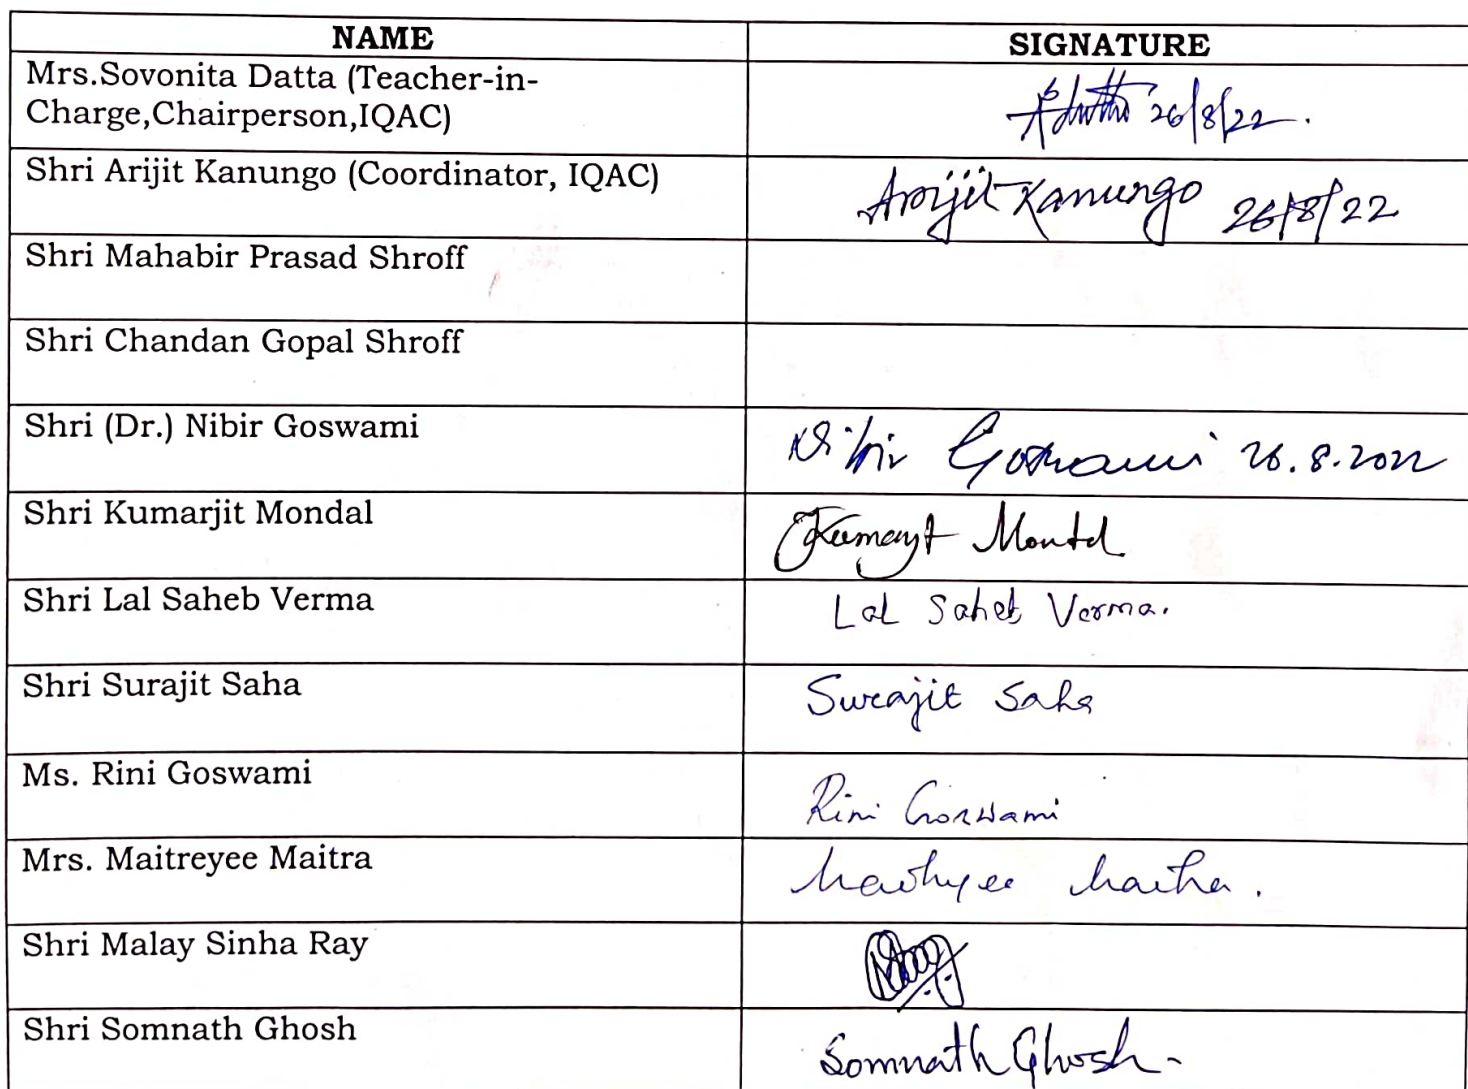 NAME
SIGNATURE
Mrs.Sovonita Datta (Teacher-in-
Charge,Chairperson,IQAC)
26/8/22.
Shri Arijit Kanungo (Coordinator, IQAC)
Arijit Kanungo 26/8/22
Shri Mahabir Prasad Shroff
Shri Chandan Gopal Shroff
Shri (Dr.) Nibir Goswami
Nibir Goswami 26.8.2022
Shri Kumarjit Mondal
Kumarjit Mondal
Shri Lal Saheb Verma
Lal Saheb Verma.
Shri Surajit Saha
Surajit Saha
Ms. Rini Goswami
Rini Goswami
Mrs. Maitreyee Maitra
Maitreyee Maitra.
Shri Malay Sinha Ray
Shri Somnath Ghosh
Somnath Ghosh